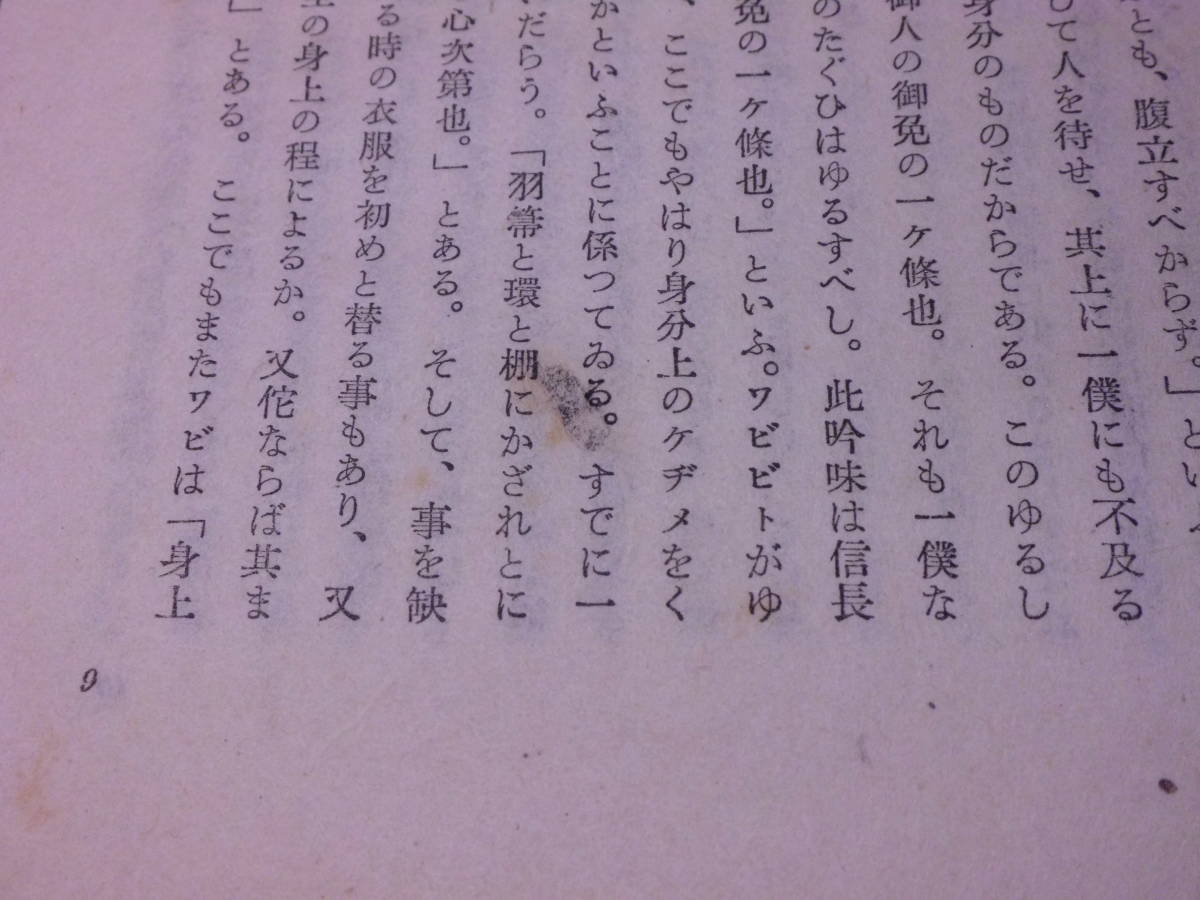 とも、腹立すべからず。」とい
して人を待せ、其上に一僕にも不及る
身分のものだからである。このゆるし
御人の御免の一ヶ條也。それも一僕な
のたぐひはゆるすべし。此吟味は信長
免の一ヶ條也。」といふ。ワビビトがゆ
、ここでもやはり身分上のケヂメをく
かといふことに係つてゐる。すでに一
だらう。「羽箒と環と棚にかざれとに
心次第也。」とある。そして、事を缺
る時の衣服を初めと替る事もあり、又
の身上の程によるか。又侘ならば其ま
」とある。ここでもまたワビは「身上
9